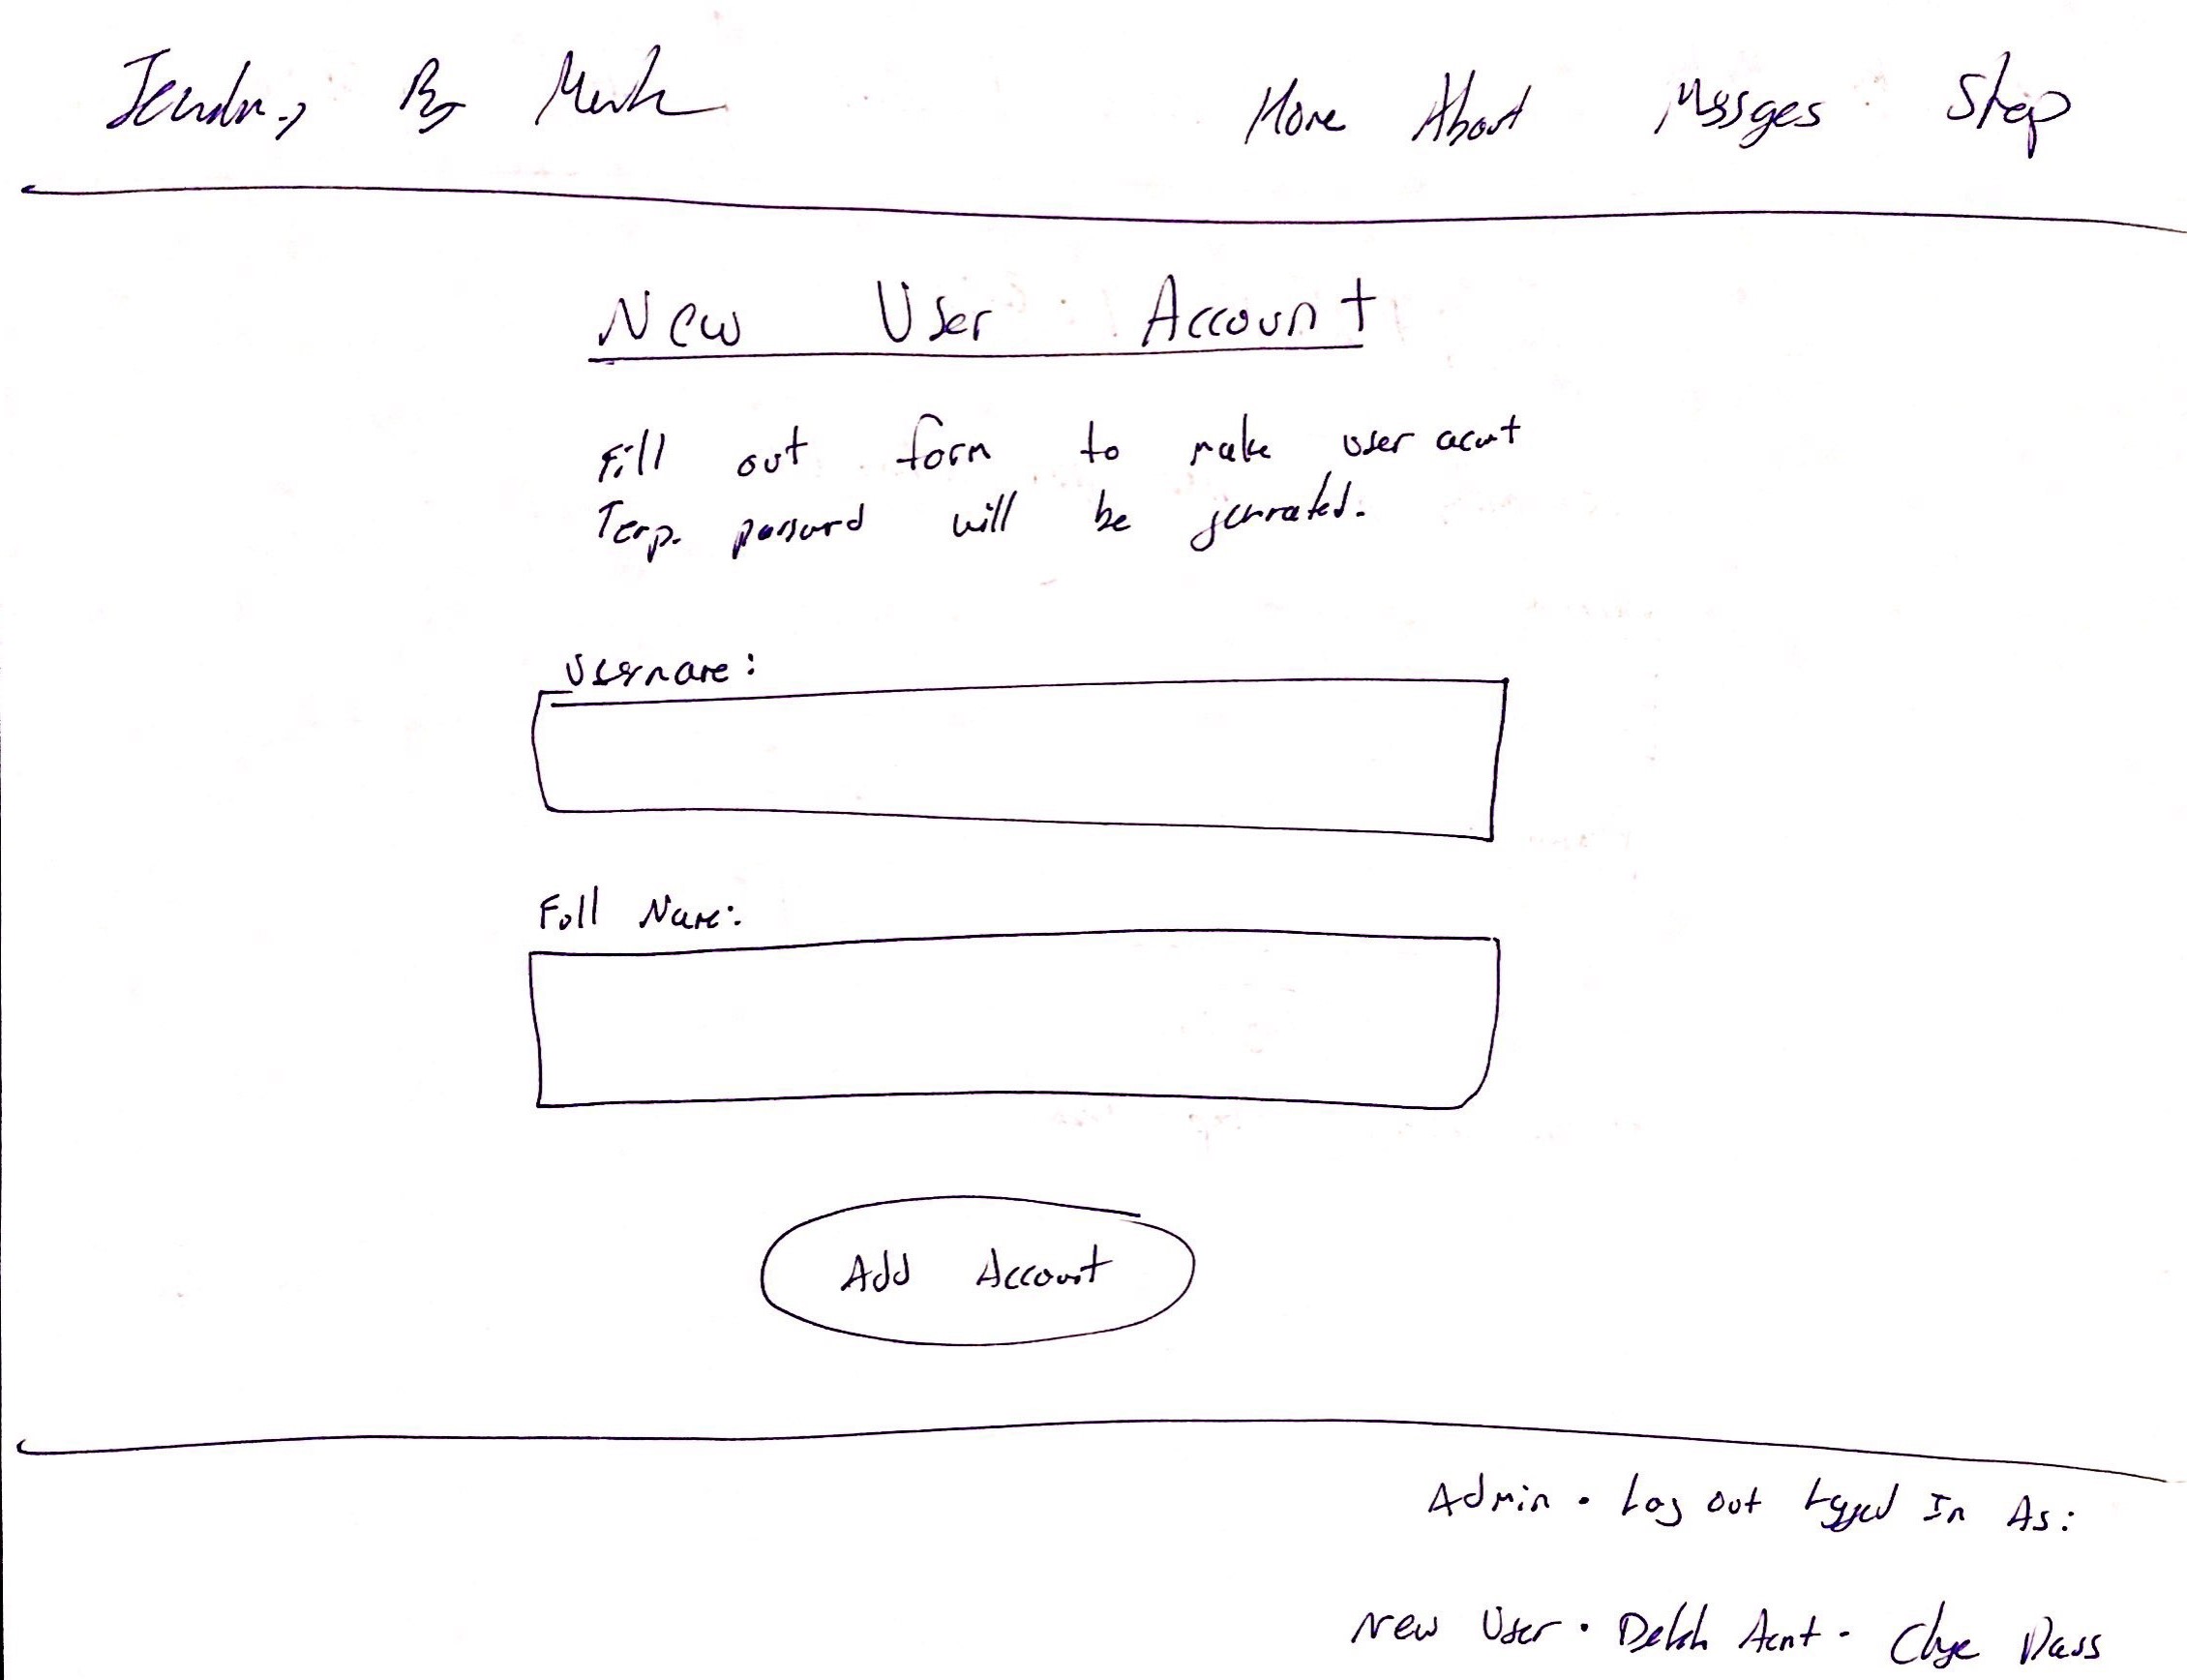 By
Home About Mssges Shop
New User Account
Fill out form to make user acnt
Temp. password will be genrated.
Username:
Full Name:
Add Account
Admin • Log out Logged In As:
New User • Acnt • Pass